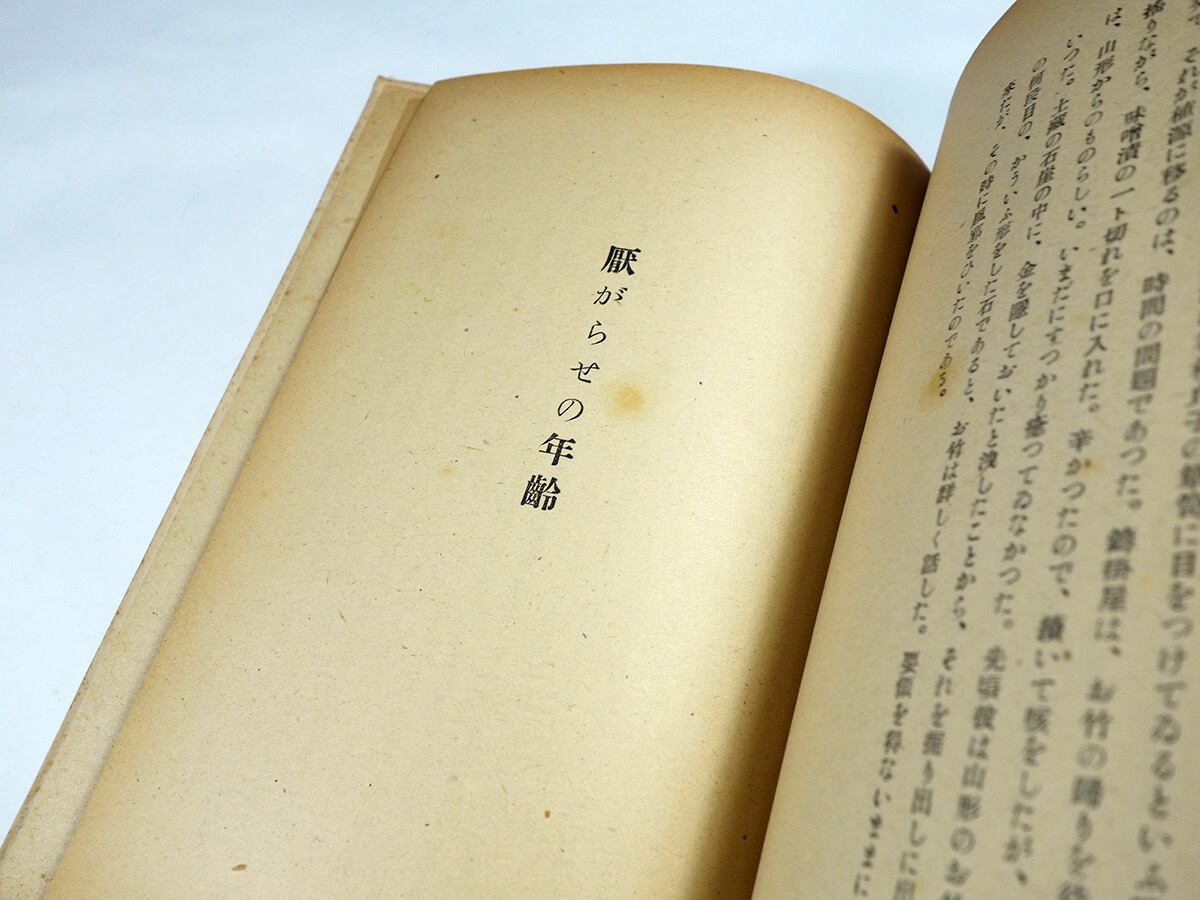 の箪笥に目をつけてゐるといふ
それが植源に移るのは、時間の問題であつた。鑄掛屋は、お竹の歸りを
揺りながら、味噌漬の一ト切れを口に入れた。辛かつたので、續いて咳をしたが、
は、山形からのものらしい。いまだにすつかり癒つてゐなかつた。先頃彼は山形のお
いつた。土藏の石崖の中に、金を隱しておいたと洩したことから、それを掘り出しに
の何段目の、かういふ形をした石であると、お竹は詳しく話した。要領を得ないままに
來たが、その時に風邪をひいたのである。
厭がらせの年齡